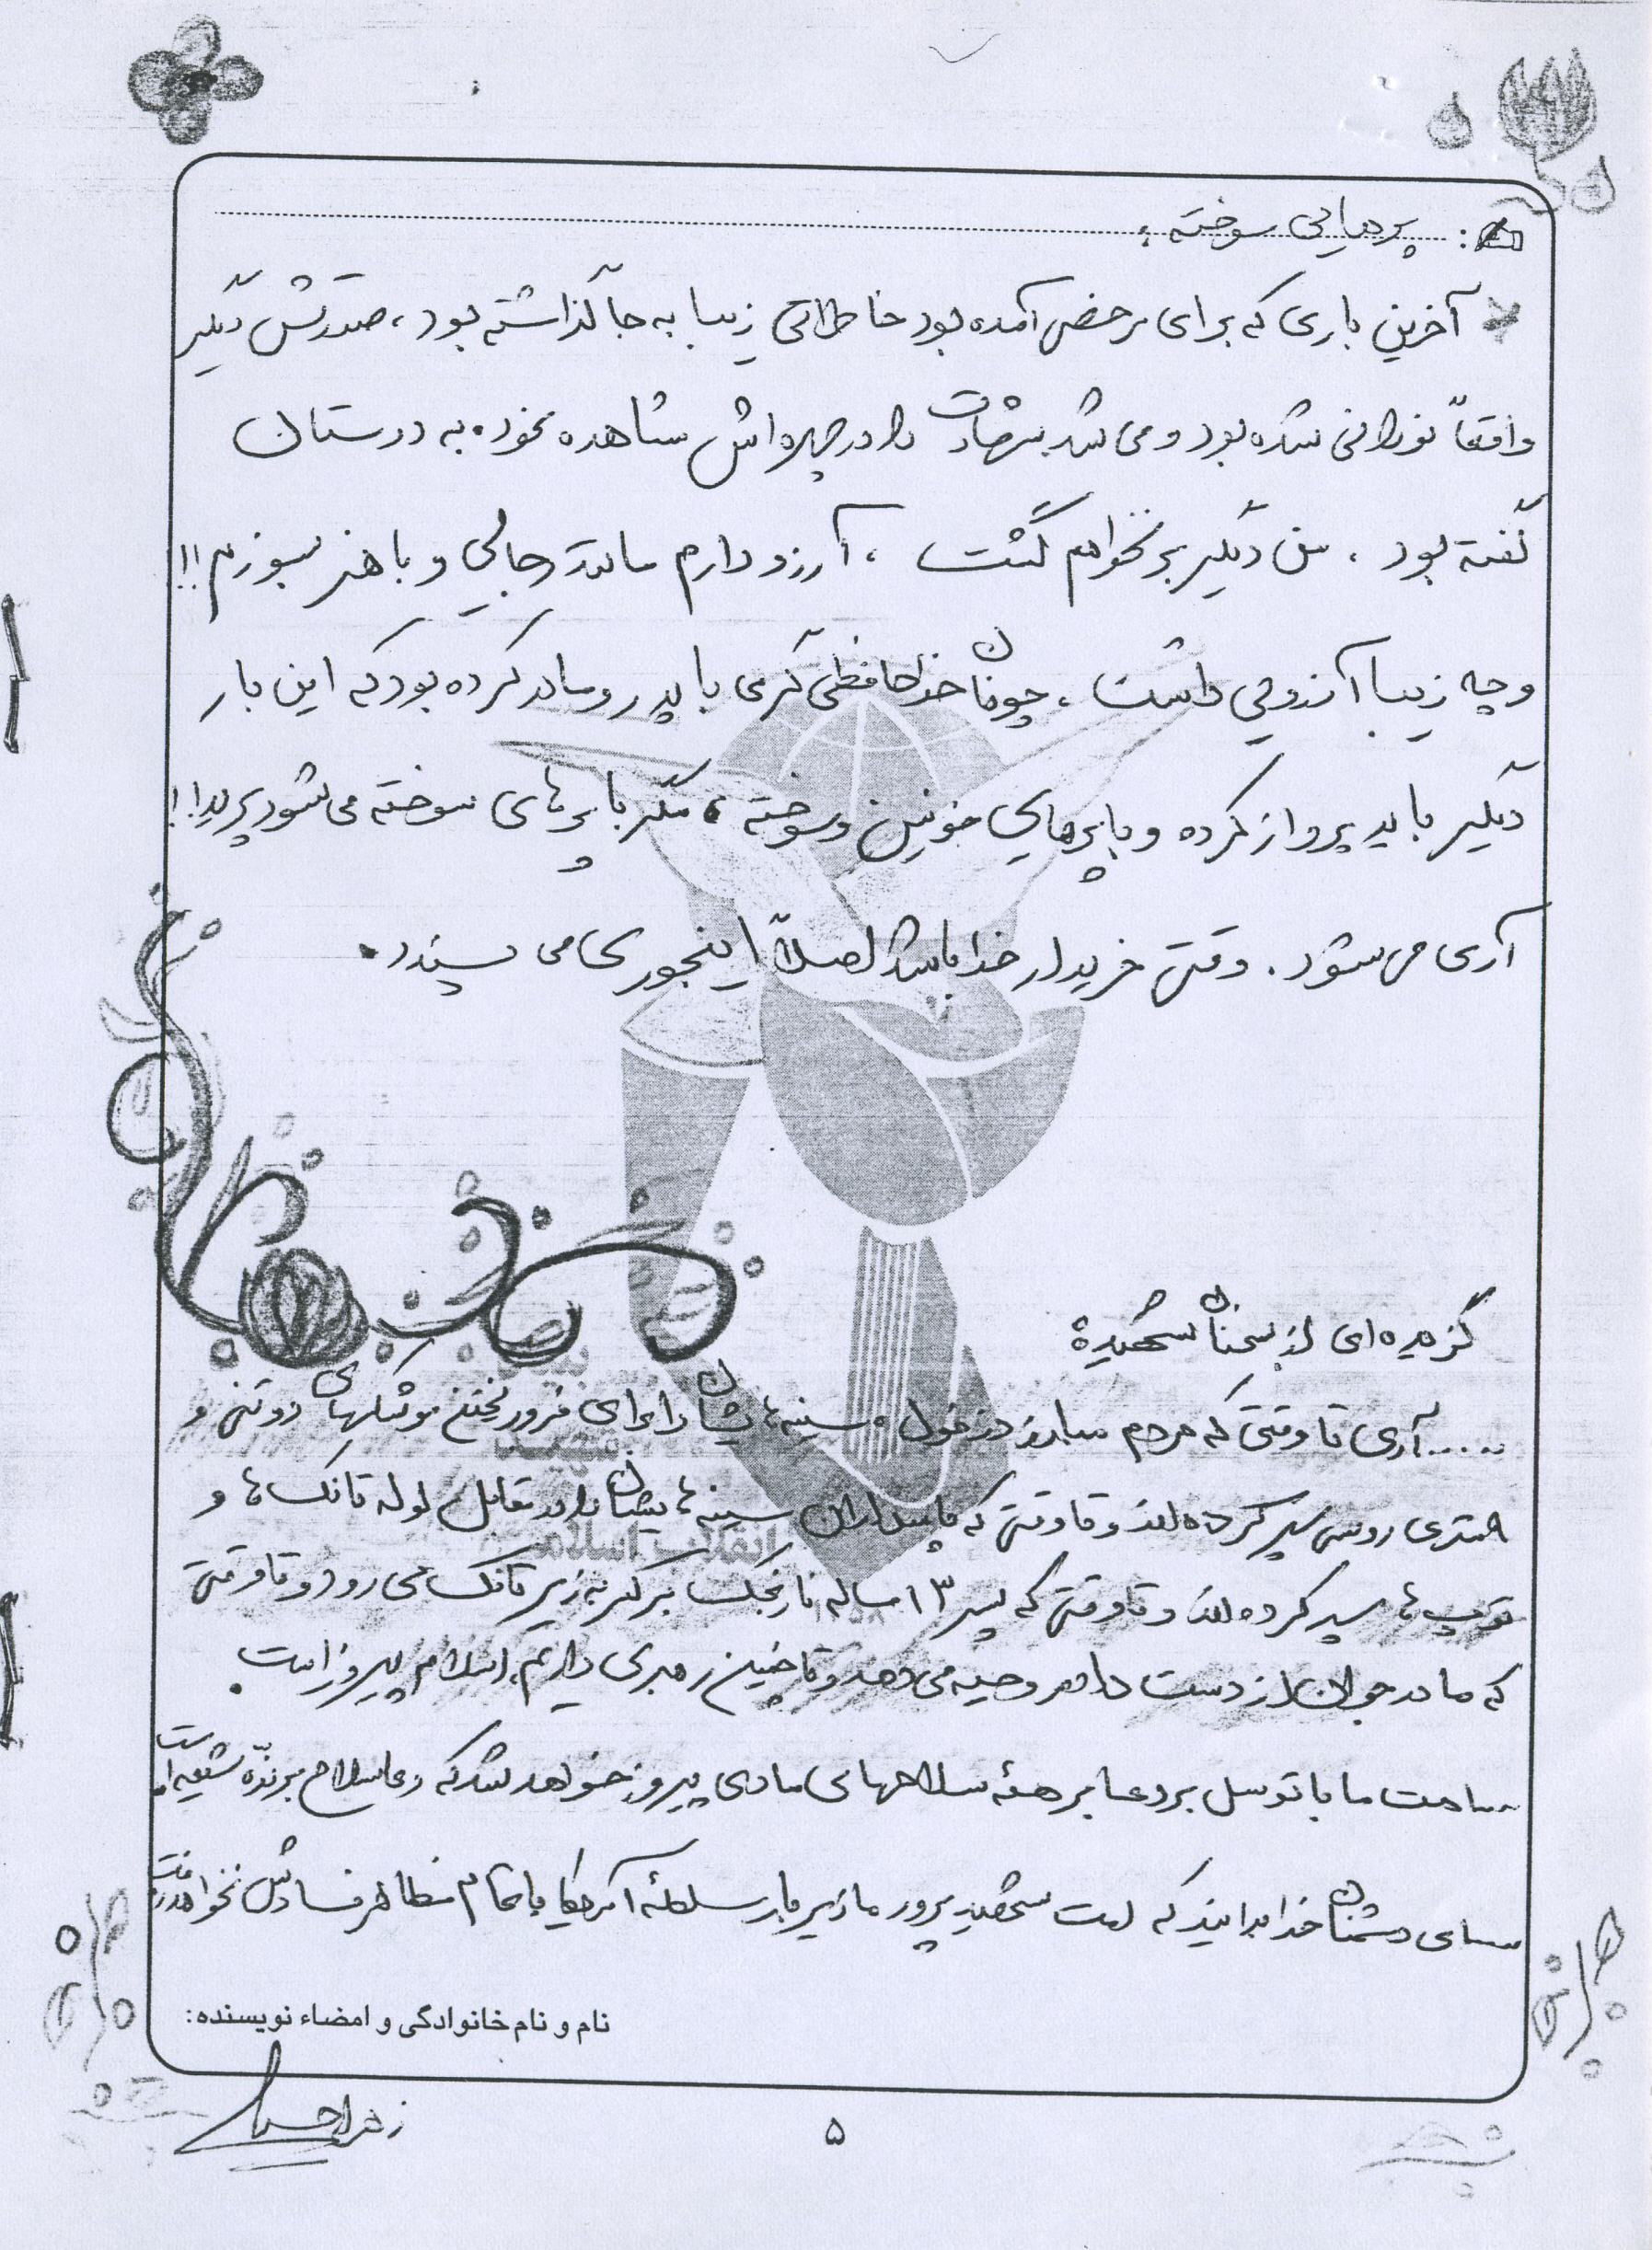 پرهایی سوخته :
آخرین باری که برای مرخصی آمده بود خاطراتی زیبا به جا گذاشته بود، صورتش دیگر
واقعاً نورانی شده بود و می شد شهادت را در چهره اش مشاهده نمود. به دوستان
گفته بود ، من دیگر بر نخواهم گشت ، آرزو دارم مانند رجایی و باهنر بسوزم !!
و چه زیبا آرزویی داشت ، چونان خداحافظی گرمی با پدر و مادر کرده بود که این بار
دیگر باید پرواز کرده و با پرهایی خونین و سوخته ، مگر با پرهای سوخته می شود پرید !!
آری می شود . وقتی خریدار خدا باشد اصلاً اینجوری می پسندد .
گزیده ای از سخنان شهید
..... آری تا وقتی که مردم مبارز دزفول سینه هایشان را برای فرو ریختن موشکهای دوتنی و
متری روسی سپر کرده اند و تا وقتی که پاسداران سینه هایشان را در مقابل لوله تانک ها و
توپ ها سپر کرده اند و تا وقتی که پسر ۱۳ ساله نارنجک بر کمر به زیر تانک می رود و تا وقتی
که مادر جوان از دست داده روحیه می دهد و تا چنین رهبری داریم، اسلام پیروز است .
ما با توسل بر دعا بر همهٔ سلاحهای مادی پیروز خواهد شد که دعا سلاح برندّه شیعه است
دشمنان خدا بدانید که امت شهید پرور ما زیر بار سلطهٔ آمریکا با تمام مظاهر فسادش نخواهد رفت
نام و نام خانوادگی و امضاء نویسنده:
زهرا
۵